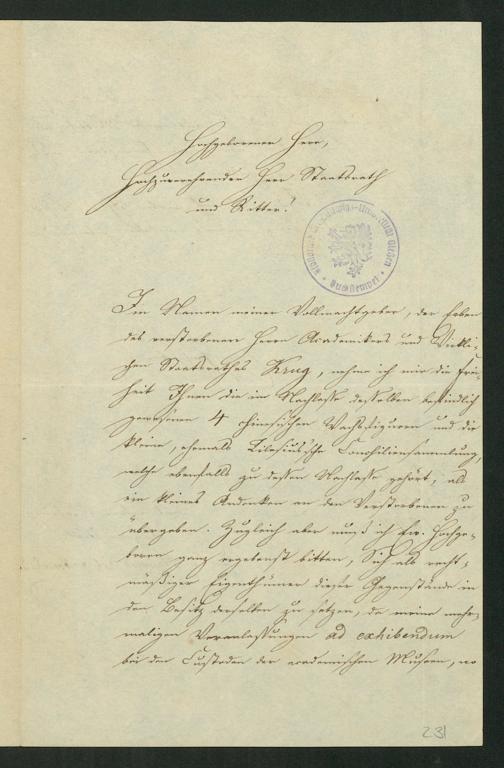 Hochgeborener Herr,
Hochzuverehrender Herr Staatsrath
und Ritter!
Im Namen meiner Vollmachtgeber, der Erben
des verstorbenen Herrn Academikers und Wirkli-
chen Staatsrathes Krug, nehme ich mir die Frei-
heit Ihnen die im Nachlasse desselben befindlich
gewesenen 4 chinesischen Wachsfiguren und die
kleine, ehemals Tilesius'sche Conchiliensammlung,
welche ebenfalls zu dessen Nachlasse gehört, als
ein kleines Andenken an den Verstorbenen zu
übergeben. Zugleich aber muß ich Ew. Hochge-
boren ganz ergebenst bitten, Sich als recht-
mäßiger Eigenthümer dieser Gegenstände in
den Besitz derselben zu setzen, da meine mehr-
maligen Veranlassungen ad exhibendum
bei den Custoden der academischen Museen, wo
231